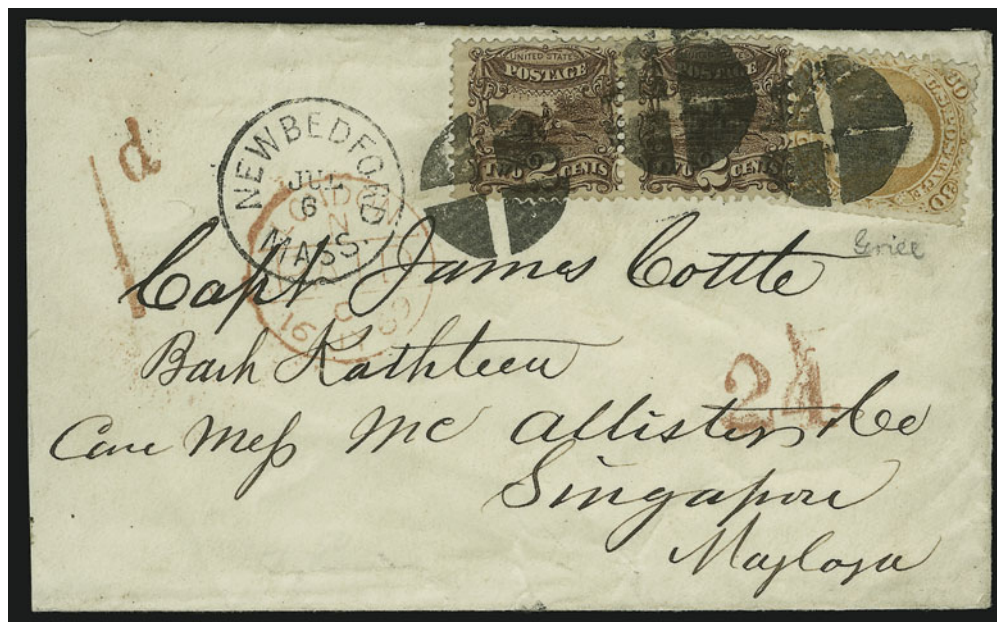 UNITED STATES
POSTAGE
TWO 2 CENTS
POSTAGE
TWO 2 CENTS
U.S. POSTAGE
30
NEW BEDFORD
JUL
6
MASS
1d
PAID
16 JU 69
Grill
Capt James Cottle
Bark Kathleen
2d.
Care Mess Mc Allister & Co
Singapore
Maylaya